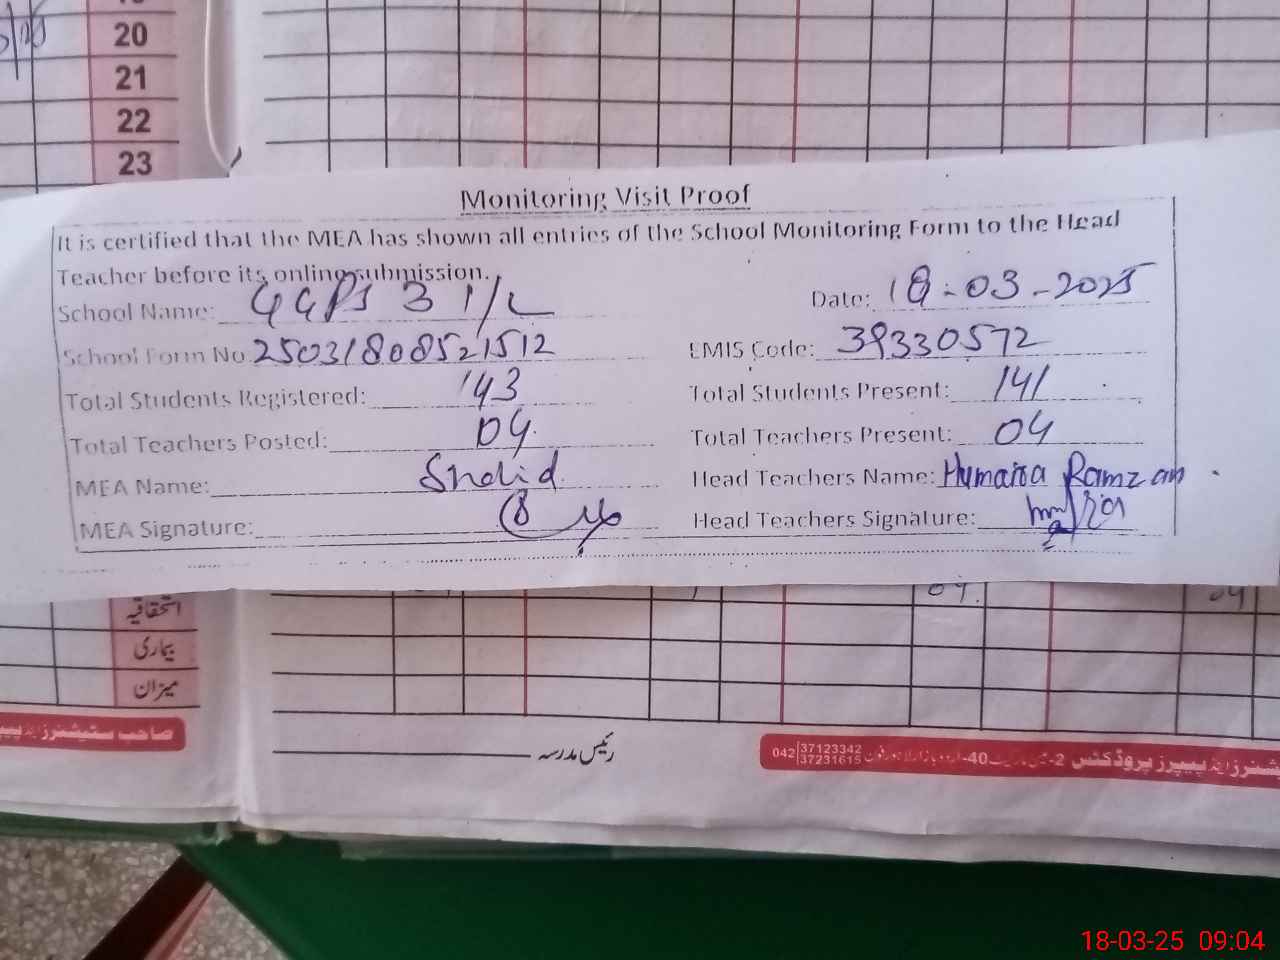 20
21
22
23
Monitoring Visit Proof
It is certified that the MEA has shown all entries of the School Monitoring Form to the Head
Teacher before its online submission.
School Name: GGPS 31/L Date: 18-03-2025
School Form No. 25031808521512 EMIS Code: 39330572
Total Students Registered: 143 Total Students Present: 141
Total Teachers Posted: 04 Total Teachers Present: 04
MEA Name: Shahid Head Teachers Name: Humaira Ramzan
MEA Signature: Head Teachers Signature:
04 04
استحقاقیہ
بیماری
میزان
رئیس مدرسہ
صاحب سٹیشنرز اینڈ پیپر
042 37123342
37231615
شنرز اینڈ پیپرز پروڈکٹس 2- 40-اردو بازار لاہور فون
18-03-25 09:04